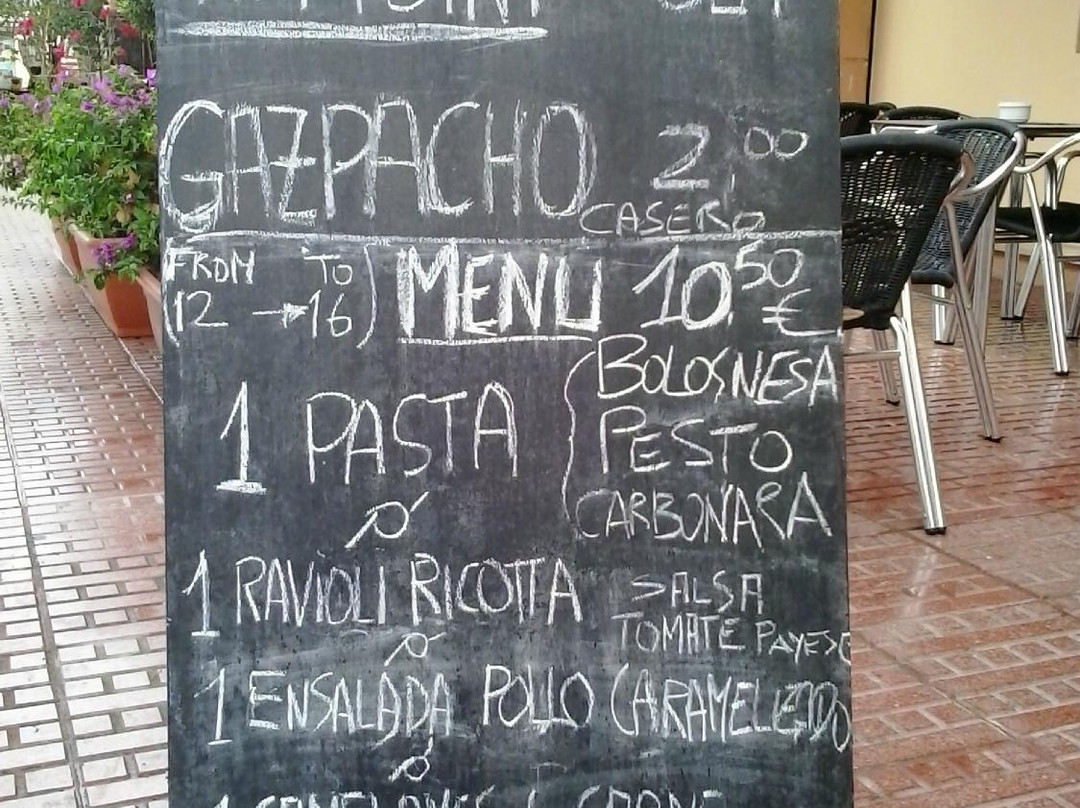 GAZPACHO 2,00
CASERO
(FROM 12 → TO 16) MENU 10.50 €
1 PASTA { BOLOGNESA
PESTO
CARBONARA
Ó
1 RAVIOLI RICOTTA SALSA
TOMATE PAYESE
Ó
1 ENSALADA POLLO CARAMELEDDO
Ó